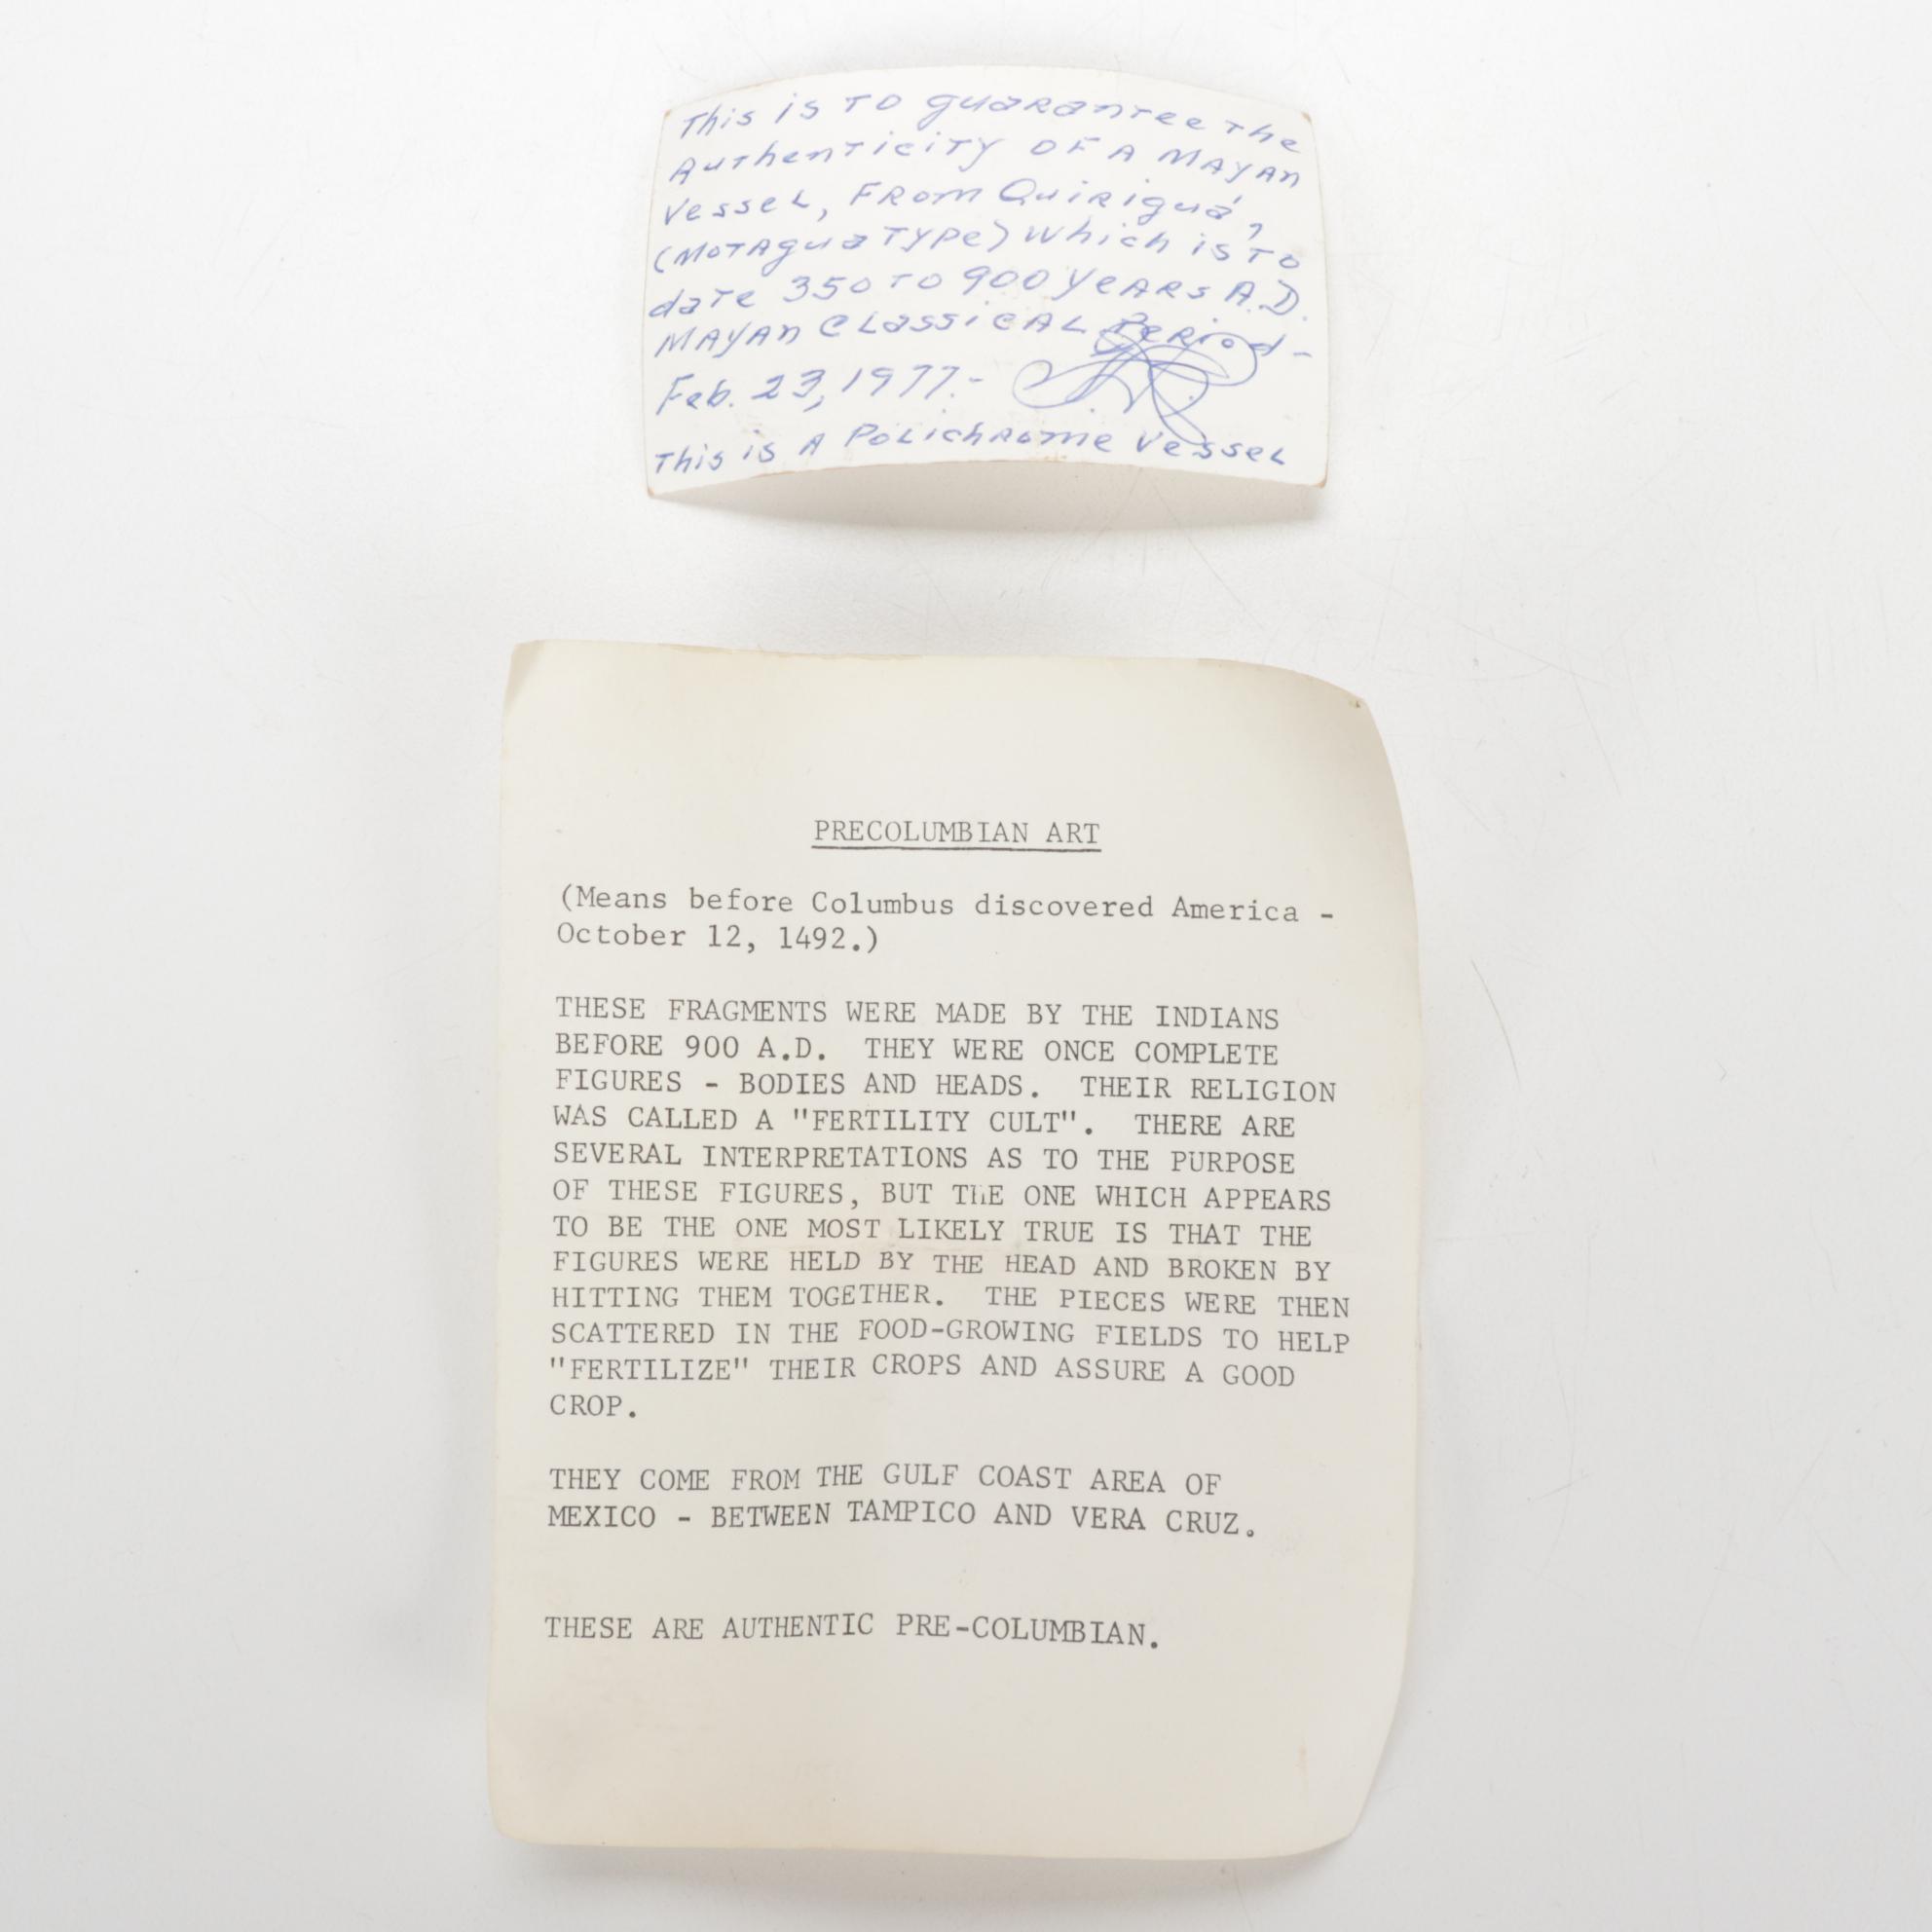 This is to guarantee the
Authenticity of a Mayan
Vessel, from Quiriguá,
(Motagua Type) which is to
date 350 to 900 years A.D.
Mayan Classical Period-
Feb. 23, 1977.-
This is a Polichrome Vessel
PRECOLUMBIAN ART
(Means before Columbus discovered America -
October 12, 1492.)
THESE FRAGMENTS WERE MADE BY THE INDIANS
BEFORE 900 A.D. THEY WERE ONCE COMPLETE
FIGURES - BODIES AND HEADS. THEIR RELIGION
WAS CALLED A "FERTILITY CULT". THERE ARE
SEVERAL INTERPRETATIONS AS TO THE PURPOSE
OF THESE FIGURES, BUT THE ONE WHICH APPEARS
TO BE THE ONE MOST LIKELY TRUE IS THAT THE
FIGURES WERE HELD BY THE HEAD AND BROKEN BY
HITTING THEM TOGETHER. THE PIECES WERE THEN
SCATTERED IN THE FOOD-GROWING FIELDS TO HELP
"FERTILIZE" THEIR CROPS AND ASSURE A GOOD
CROP.
THEY COME FROM THE GULF COAST AREA OF
MEXICO - BETWEEN TAMPICO AND VERA CRUZ.
THESE ARE AUTHENTIC PRE-COLUMBIAN.